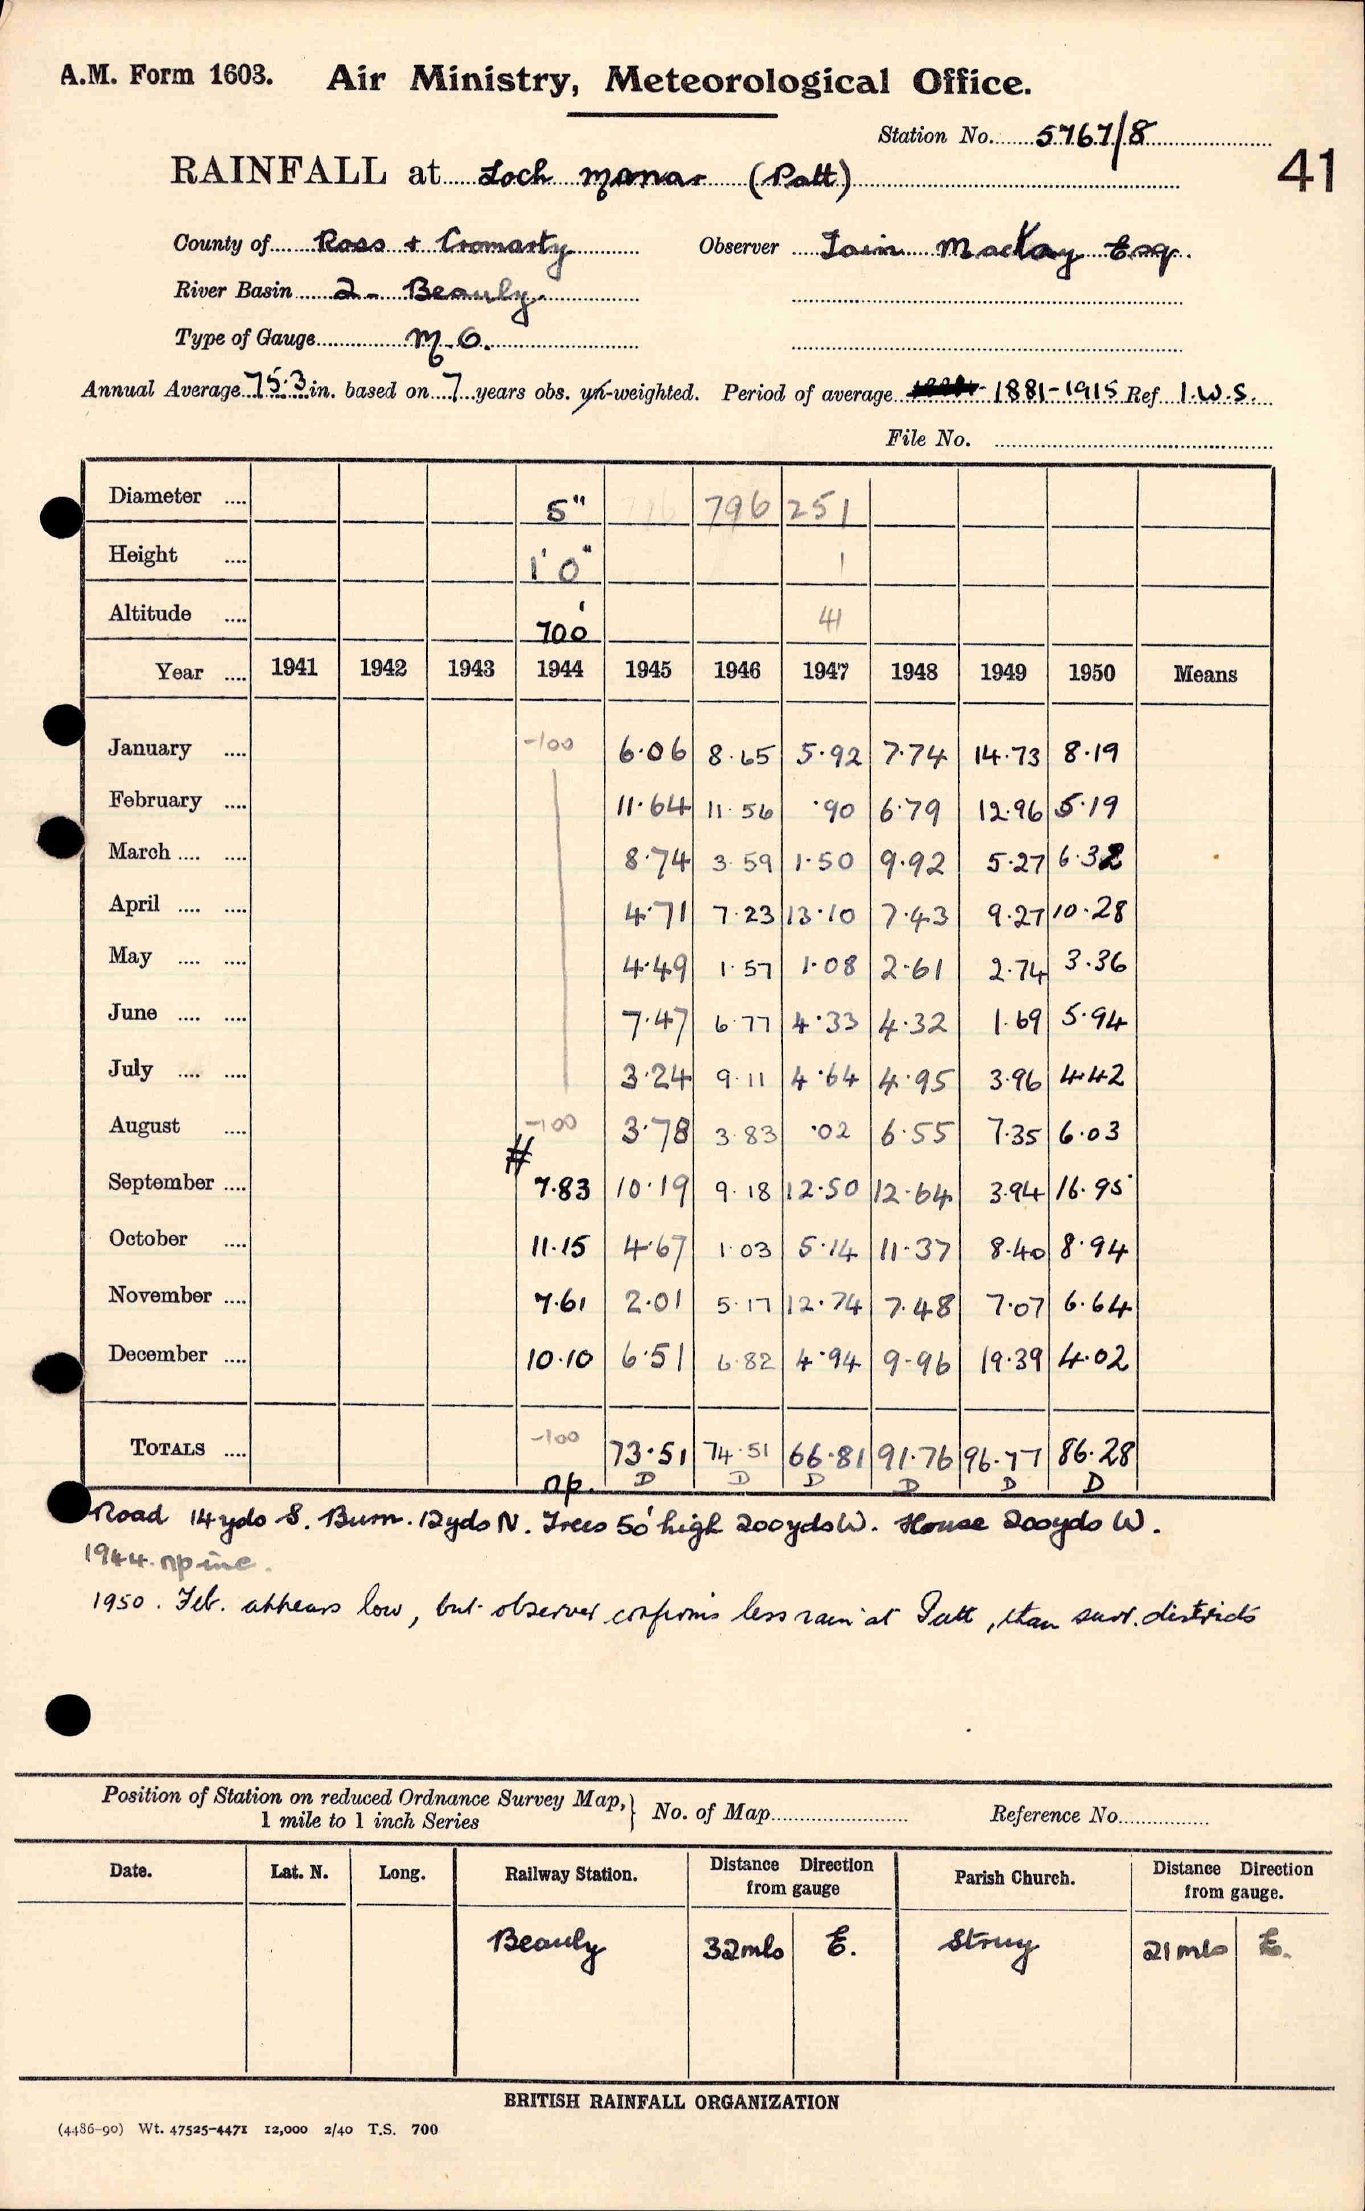 A.M. Form 1603. Air Ministry, Meteorological Office.
Station No. 5767/8
41
RAINFALL at Loch Monar (Patt)
County of Ross + Cromarty Observer Iain MacKay Esq.
River Basin 2 - Beauly
Type of Gauge M.O.
Annual Average 75.3 in. based on 7 years obs. un-weighted. Period of average 1881-1915 Ref I.W.S.
File No.
Diameter 5" 796 251
Height 1' 0" 1
Altitude 700' 41
Year 1941 1942 1943 1944 1945 1946 1947 1948 1949 1950 Means
January -100 6.06 8.65 5.92 7.74 14.73 8.19
February 11.64 11.56 .90 6.79 12.96 5.19
March 8.74 3.59 1.50 9.92 5.27 6.32
April 4.71 7.23 13.10 7.43 9.27 10.28
May 4.49 1.57 1.08 2.61 2.74 3.36
June 7.47 6.77 4.33 4.32 1.69 5.94
July 3.24 9.11 4.64 4.95 3.96 4.42
August -100 3.78 3.83 .02 6.55 7.35 6.03
#
September 7.83 10.19 9.18 12.50 12.64 3.94 16.95
October 11.15 4.67 1.03 5.14 11.37 8.40 8.94
November 7.61 2.01 5.17 12.74 7.48 7.07 6.64
December 10.10 6.51 6.82 4.94 9.96 19.39 4.02
TOTALS -100 73.51 74.51 66.81 91.76 96.77 86.28
np. D D D D D D
Road 14yds S. Burn. 12yds N. Trees 50' high 200yds W. House 200yds W.
1944. np inc.
1950. Feb. appears low, but observer confirms less rain at Patt, than surr. districts
Position of Station on reduced Ordnance Survey Map, No. of Map Reference No.
1 mile to 1 inch Series
Date. Lat. N. Long. Railway Station. Distance Direction from gauge Parish Church. Distance Direction from gauge.
Beauly 32mls E. Struy 21mls E.
BRITISH RAINFALL ORGANIZATION
(4486-90) Wt. 47525-4471 12,000 2/40 T.S. 700